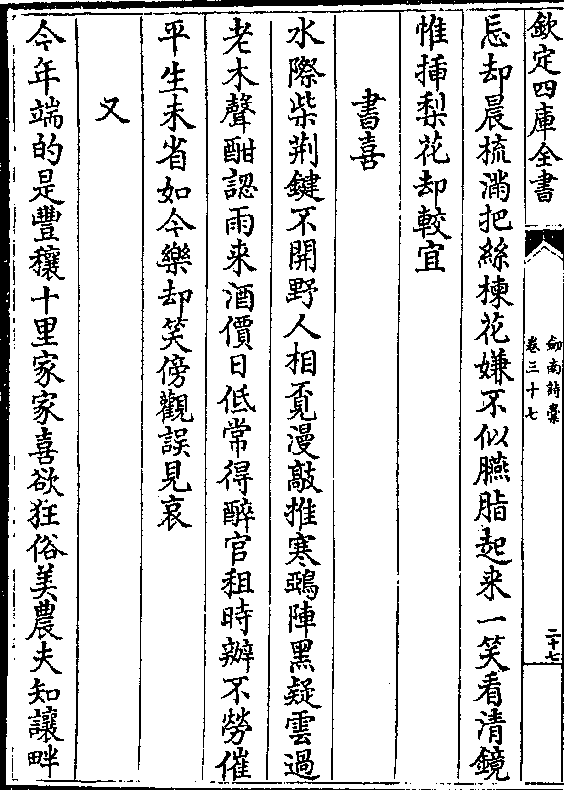 欽定四庫全書
劒南詩藁
卷三十七
二十七
忘却晨梳滿把絲楝花嫌不似臙脂起来一笑看清鏡
惟揷梨花却較宜
書喜
水際柴荆鍵不開野人相覔漫敲推寒鵶陣黑疑雲過
老木聲酣認雨来酒價日低常得醉官租時辦不勞催
平生未省如今樂却笑傍觀誤見哀
又
今年端的是豐穰十里家家喜欲狂俗美農夫知讓畔